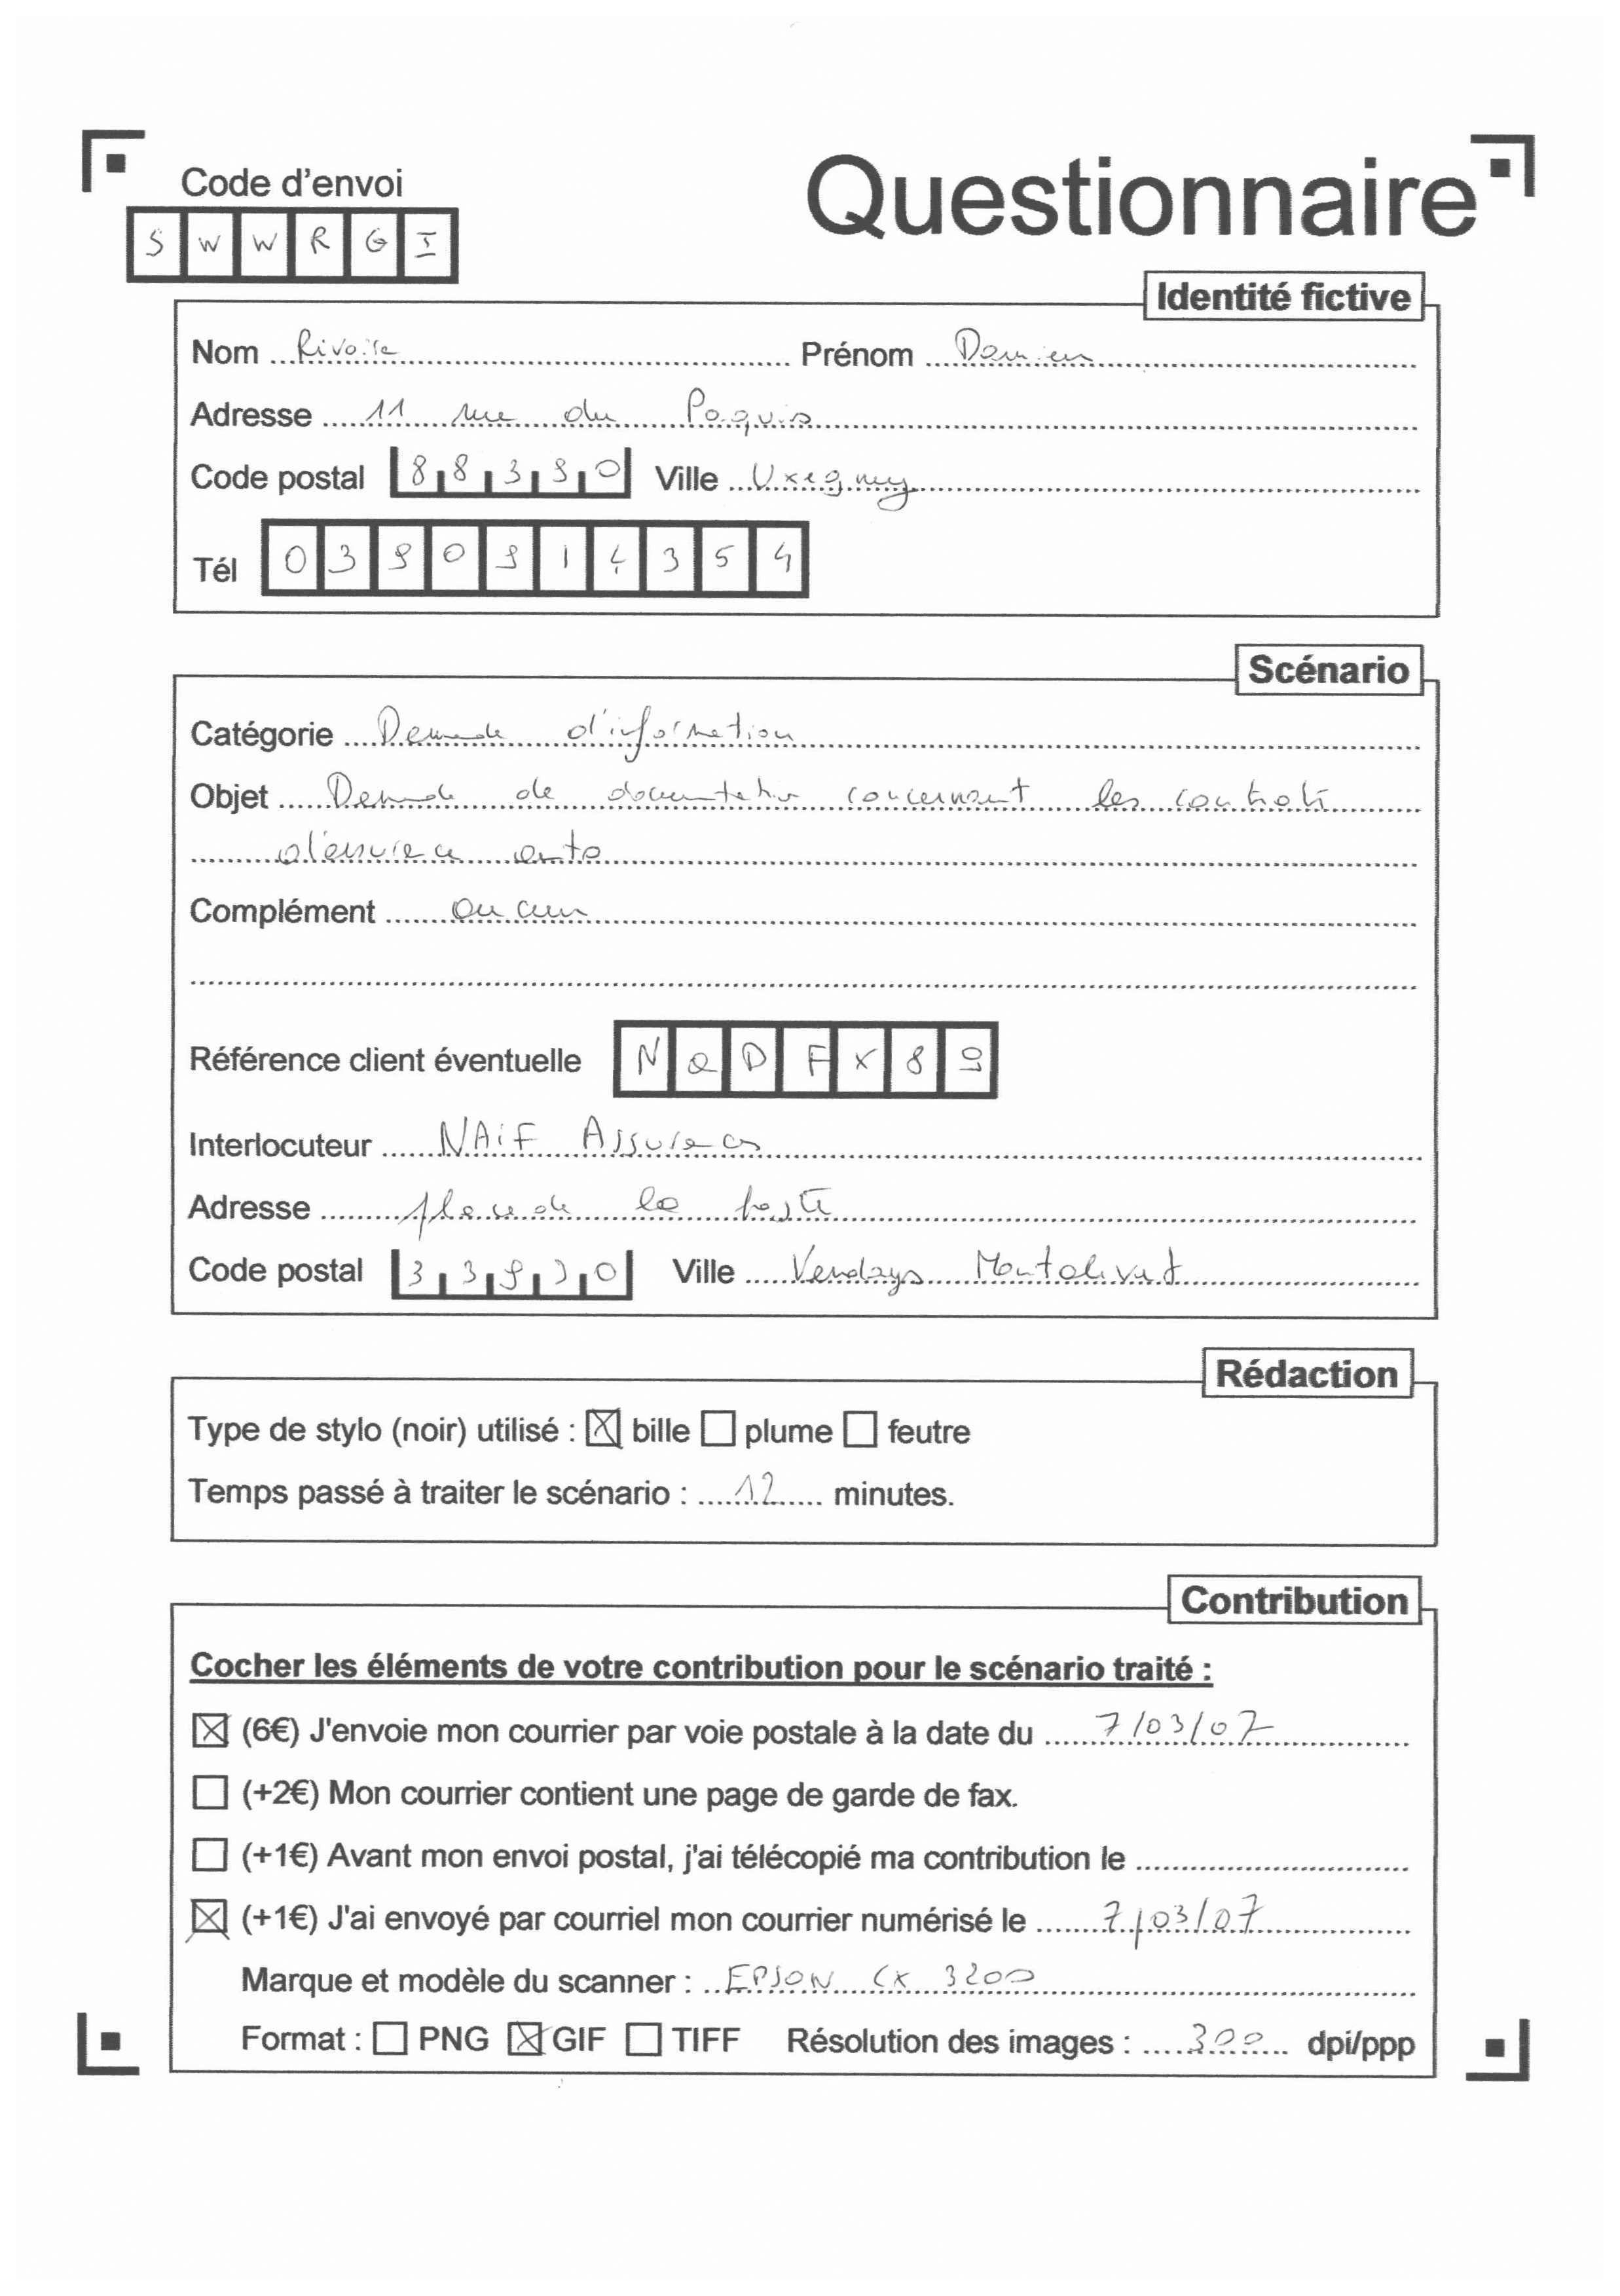 Code d'envoi
Questionnaire
S W W R G I
Identité fictive
Nom Rivoire Prénom Damien
Adresse 11 rue du Paquis
Code postal 88390 Ville Uxegney
Tél 0390914354
Scénario
Catégorie Demande d'information
Objet Demande de documentation concernant les contrats
d'assurance auto
Complément aucun
Référence client éventuelle NQDFX89
Interlocuteur NAiF Assurances
Adresse place de la poste
Code postal 33930 Ville Vendays Montalivet
Rédaction
Type de stylo (noir) utilisé : bille plume feutre
Temps passé à traiter le scénario : 12 minutes.
Contribution
Cocher les éléments de votre contribution pour le scénario traité :
(6€) J'envoie mon courrier par voie postale à la date du 7/03/07
(+2€) Mon courrier contient une page de garde de fax.
(+1€) Avant mon envoi postal, j'ai télécopié ma contribution le
(+1€) J'ai envoyé par courriel mon courrier numérisé le 7/03/07
Marque et modèle du scanner : EPSON CX 3200
Format : PNG GIF TIFF Résolution des images : 300 dpi/ppp